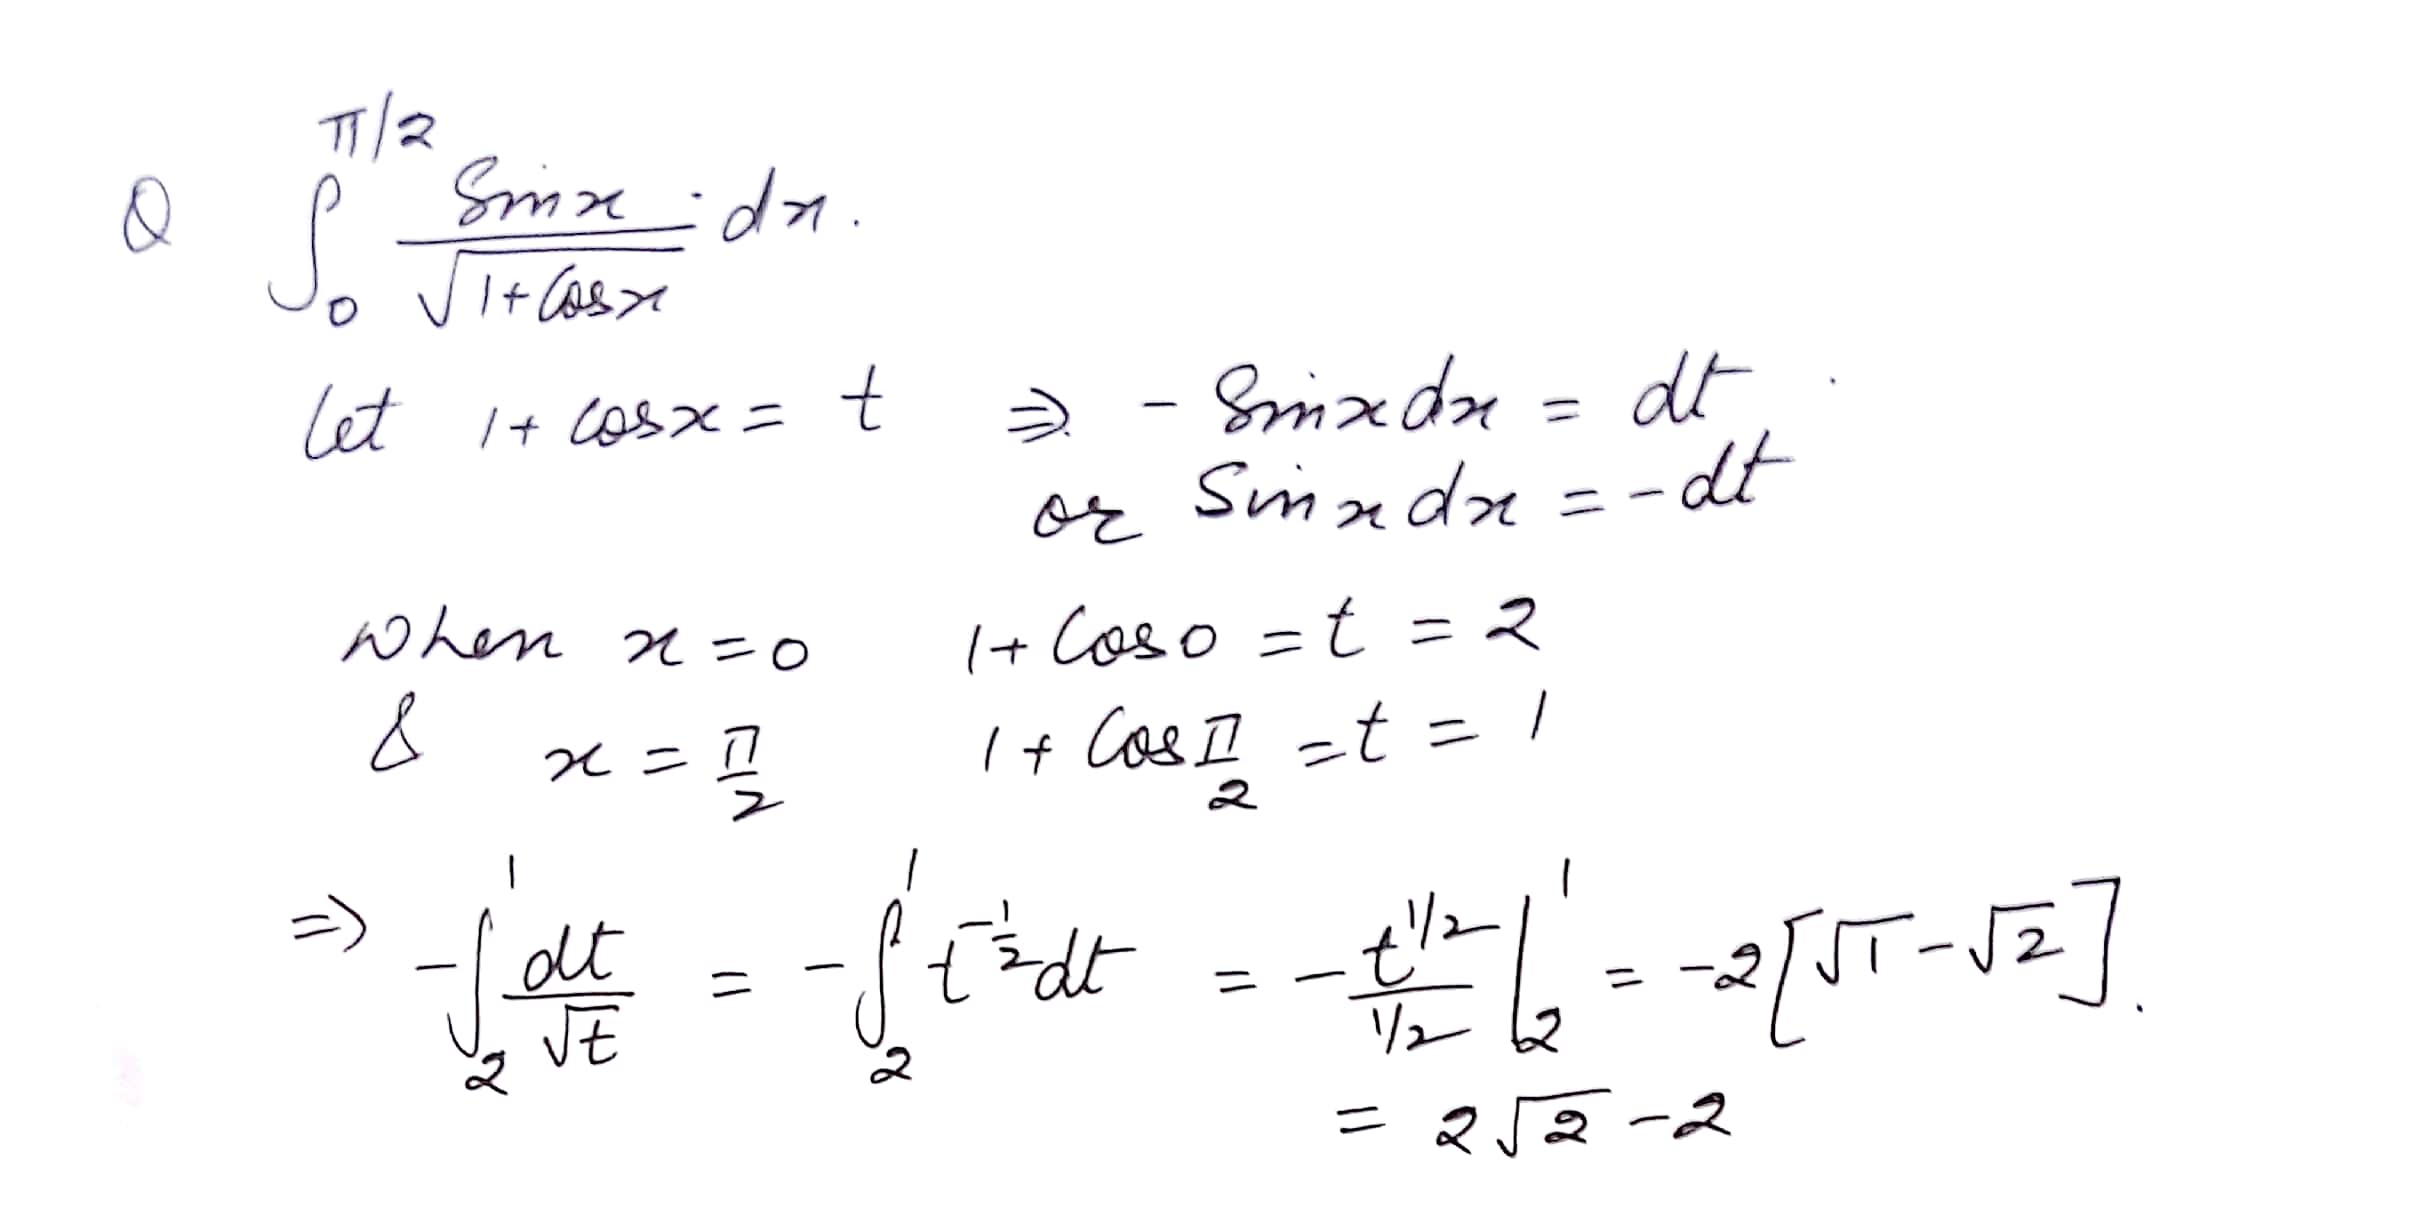 Q ∫₀^{π/2} Sinx/√(1+Cosx) · dx.
Let 1+ Cosx = t ⇒ - Sinxdx = dt
or Sinxdx = -dt
when x=0 1+ Cos0 = t = 2
& x = π/2 1+ Cos π/2 = t = 1
⇒ -∫₂¹ dt/√t = -∫₂¹ t^{-1/2} dt = - t^{1/2}/(1/2) |₂¹ = -2[√1 - √2].
= 2√2 - 2